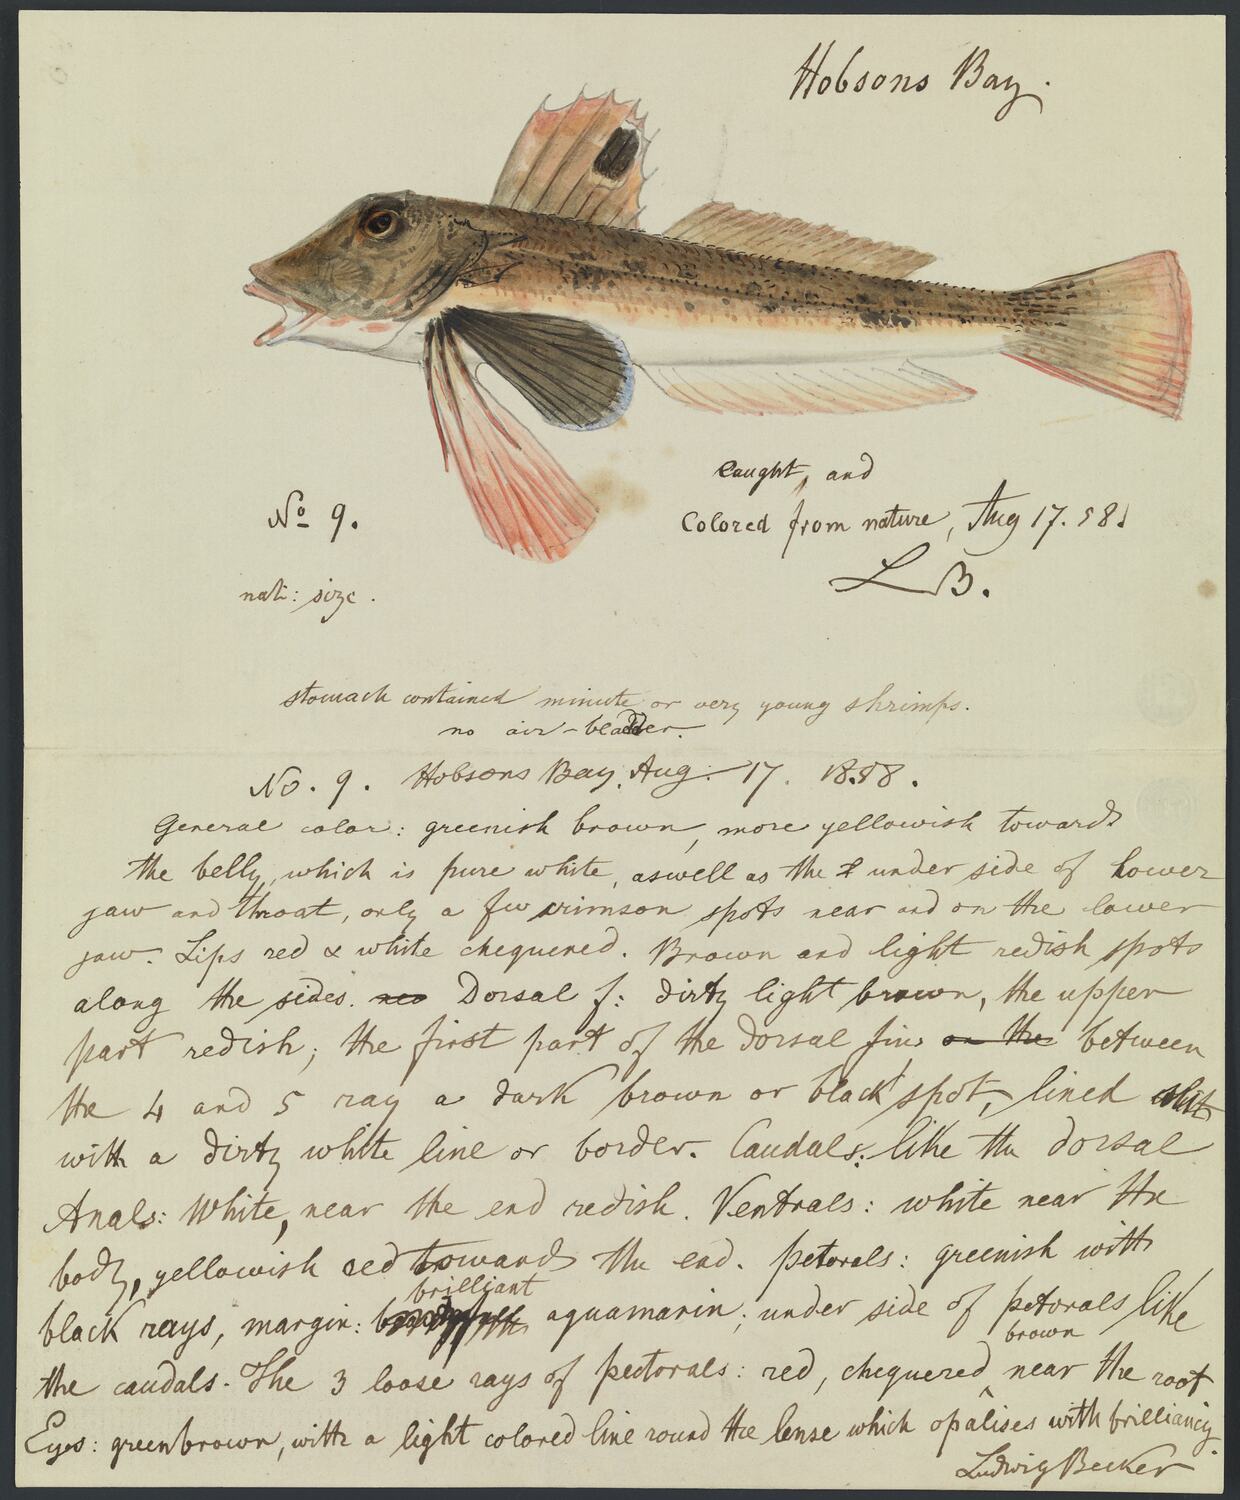 Hobsons Bay.
caught, and
Colored from nature, Aug 17. 58.
L B.
No 9.
nat: size.
stomach contained minute or very young shrimps.
no air-bladder.
No. 9. Hobsons Bay, Aug. 17. 1858.
General color: greenish brown, more yellowish towards
the belly, which is pure white, aswell as the under side of lower
jaw and throat, only a few crimson spots near and on the lower
jaw. Lips red & white chequered. Brown and light redish spots
along the sides. Dorsal f: dirty light brown, the upper
part redish; the first part of the dorsal fin, on the between
the 4 and 5 ray a dark brown or black spot, lined
with a dirty white line or border. Caudals: like the dorsal
Anals: White, near the end redish. Ventrals: white near the
body, yellowish red towards the end. petorals: greenish with
black rays, margin: brilliant aquamarin; under side of petorals like
the caudals. The 3 loose rays of pectorals: red, chequered brown near the root
Eyes: greenbrown, with a light colored line round the lense which opalises with brilliancy.
Ludwig Becker